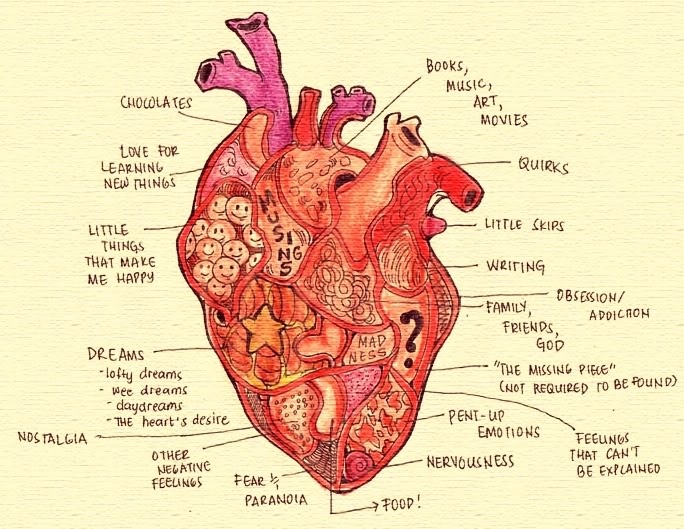 CHOCOLATES
LOVE FOR
LEARNING
NEW THINGS
LITTLE
THINGS
THAT MAKE
ME HAPPY
DREAMS
- lofty dreams
- wee dreams
- daydreams
- THE heart's desire
NOSTALGIA
OTHER
NEGATIVE
FEELINGS
FEAR &
PARANOIA
FOOD!
BOOKS,
MUSIC,
ART,
MOVIES
QUIRKS
LITTLE SKIPS
WRITING
OBSESSION/
ADDICTION
FAMILY,
FRIENDS,
GOD
"THE MISSING PIECE"
(NOT REQUIRED TO BE FOUND)
PENT-UP
EMOTIONS
FEELINGS
THAT CAN'T
BE EXPLAINED
NERVOUSNESS
MUSINGS
MAD
NESS
?